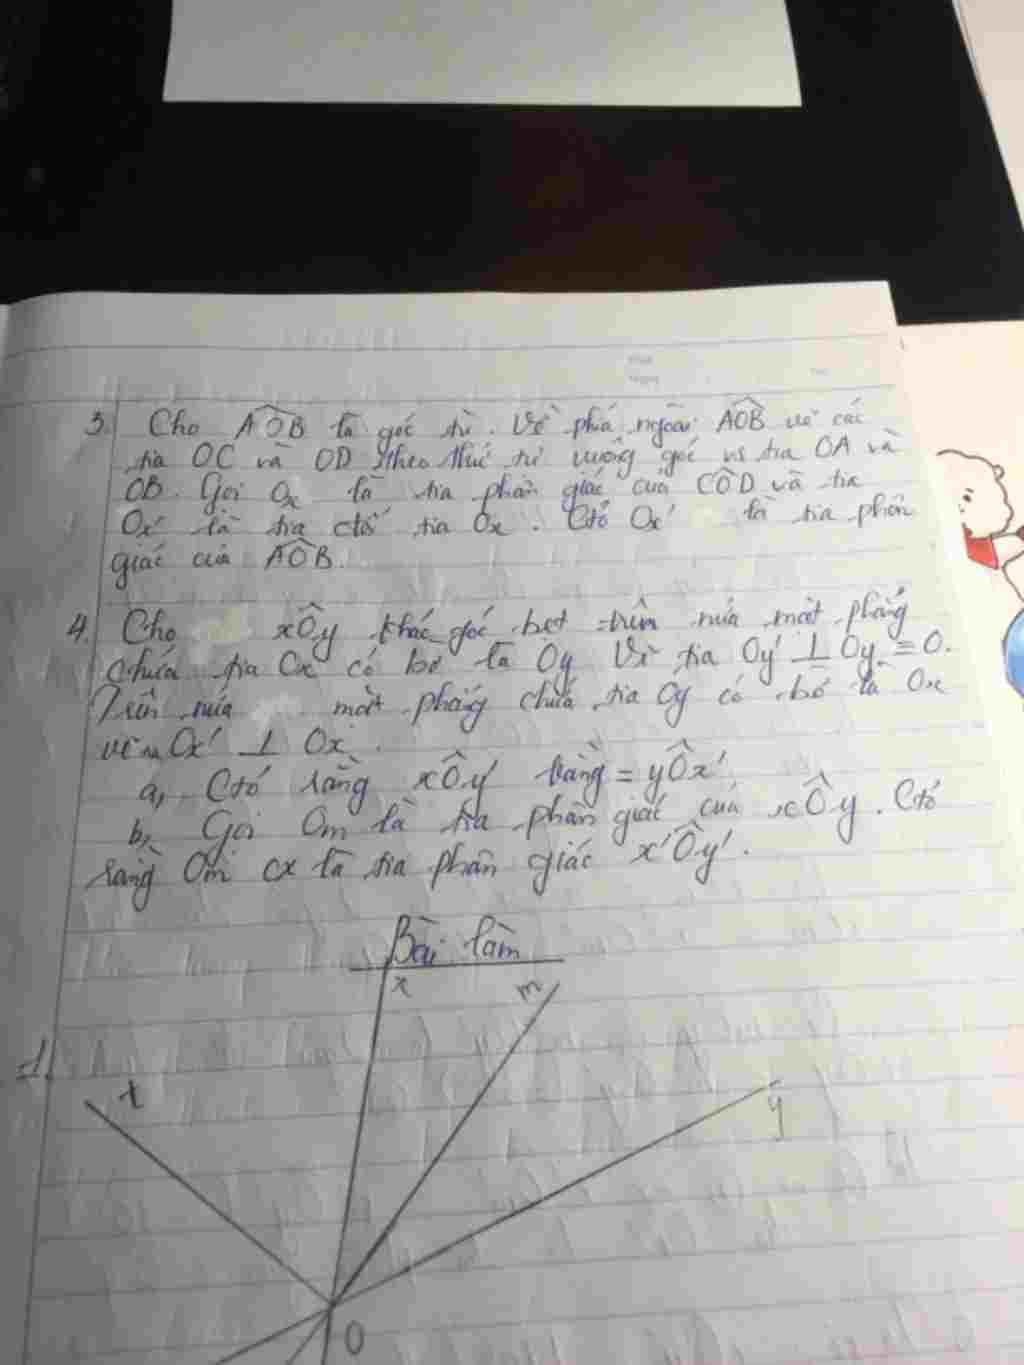 3. Cho AÔB là góc tù. Vẽ phía ngoài AÔB vẽ các
tia OC và OD theo thứ tự vuông góc vs tia OA và
OB. Gọi Ox là tia phân giác của CÔD và tia
Ox' là tia đối tia Ox. Ctỏ Ox' là tia phân
giác của AÔB.
4. Cho xÔy khác góc bẹt trên nửa mặt phẳng
chứa tia Ox có bờ là Oy Vẽ tia Oy' ⊥ Oy = O.
Trên nửa mặt phẳng chứa tia Oy có bờ là Ox
vẽ Ox' ⊥ Ox.
a, Ctỏ rằng xÔy' bằng = yÔx'
b, Gọi Om là tia phân giác của xÔy. Ctỏ
rằng Om cx là tia phân giác x'Ôy'.
Bài làm
x m
1.
t
y
O